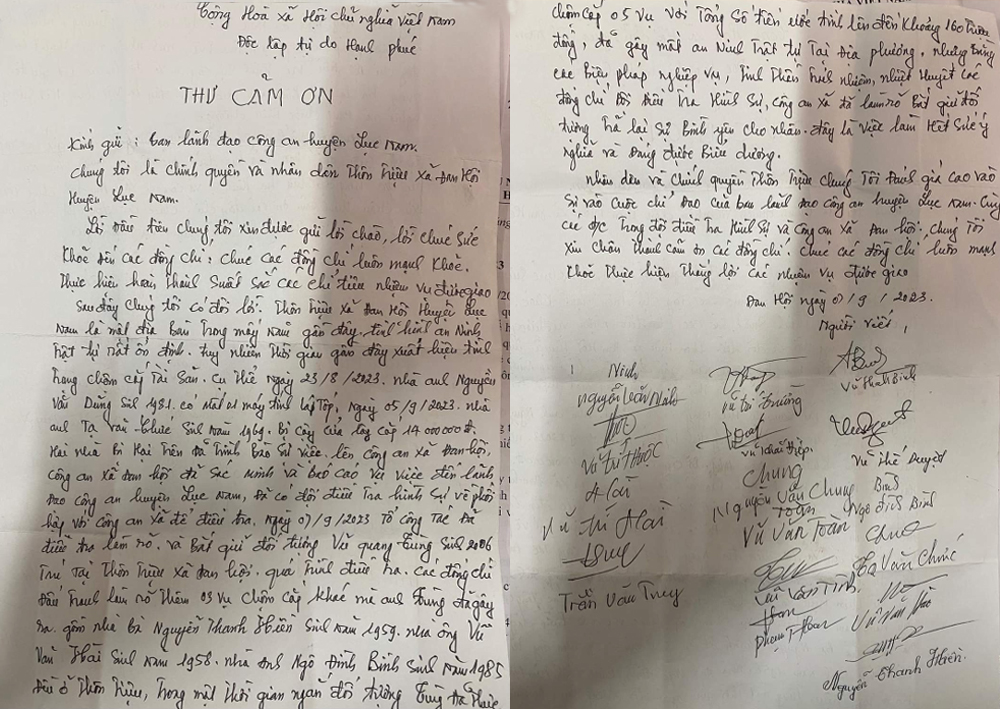 Cộng Hoà xã Hội chủ nghĩa việt Nam
Độc lập tự do Hạnh phúc
THƯ CẢM ƠN
Kính gửi : ban lãnh đạo công an huyện Lục Nam.
chúng tôi là chính quyền và nhân dân Thôn Trịu xã Đan Hội
Huyện Lục Nam.
Lời Đầu tiên chúng tôi xin được gửi lời chào, lời chúc sức
khoẻ đến các đồng chí: chúc các đồng chí luôn mạnh khoẻ.
Thực hiện hoàn thành suất sắc các chỉ tiêu nhiệm vụ được giao
sau đây chúng tôi có đôi lời. Thôn Trịu xã Đan Hội Huyện Lục
Nam là một địa Bàn Trong mấy năm gần đây. tình hình an Ninh
trật tự rất ổn định. tuy nhiên thời gian gần đây xuất hiện tình
Trạng chộm cắp Tài sản. cụ thể ngày 23/8/2023. nhà anh Nguyễn
văn Dũng sinh 1981. có mất 01 máy tính lập Tóp, ngày 05/9/2023. nhà
anh Tạ văn chúc sinh năm 1969. Bị cậy cửa lấy cắp 14000000đ.
Hai nhà Bị Hại Trên đã Trình Báo sự việc. lên công an xã Đan hội,
công an xã Đan hội đã sác minh và Báo cáo vụ việc đến lãnh
đạo công an huyện Lục Nam, Đã có đội điều Tra hình sự về phối
hợp với công an xã để điều tra. Ngày 07/9/2023 Tổ công Tác Đã
điều tra làm rõ. và Bắt giữ đối tượng Vũ quang Tùng sinh 2006
Trú Tại Thôn Trịu xã Đan hội. quá trình điều tra. các đồng chí
Đấu tranh làm rõ thêm 03 vụ chôm cắp khác mà anh Tùng đã gây
ra. gồm nhà bà Nguyễn Thanh Hiền sinh năm 1959. nhà ông Vũ
Văn Hải sinh năm 1958. nhà anh Ngô Đình Bình sinh năm 1985
Đều ở Thôn Trịu, Trong một thời gian ngắn đối tượng Tùng đã thực
chôm cắp 05 vụ với Tổng số tiền ước tính lên đến khoảng 160 triệu
đồng, đã gây mất an Ninh Trật tự Tại địa phương, nhưng bằng
các Biện pháp nghiệp vụ, Tinh thần trách nhiệm, nhiệt huyết các
đồng chí Đội điều Tra Hình sự, công an xã đã làm rõ Bắt giữ đối
tượng trả lại sự Bình yên cho nhân. đây là việc làm Hết sức ý
nghĩa và đáng được Biểu dương.
nhân dân và chính quyền Thôn Trịu chúng Tôi đánh giá cao vào
sự vào cuộc chỉ đạo của ban lãnh đạo công an huyện Lục Nam. cùng
các đ/c Trong đội điều tra Hình sự và công an xã Đan hội, chúng Tôi
xin chân thành cảm ơn các đồng chí. chúc các đồng chí luôn mạnh
khoẻ Thực hiện Thắng lợi các nhiệm vụ được giao
Đan Hội ngày 07/9/2023.
Người viết,
Ninh
nguyễn Văn Ninh
vũ trí Trường
vũ thanh Bình
vũ trí thuộc
vũ khải điệp.
vũ thế Duyệt
Chung
Nguyễn Văn Chung
Bình
Ngô đình Bình
Vũ trí Hải
Toàn
Vũ Văn Toàn
Chúc
Tạ Văn Chúc
Trần Văn Truy
Phạm Thoan
Nguyễn Thanh Hiền.